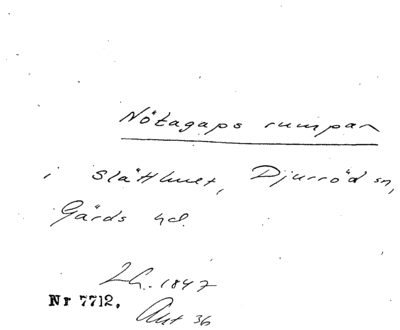 Nötagaps rumpan
i Slätthult, Djurröd sn,
Gärds hd.
Lh. 1847
Nr 7712.
Akt 36